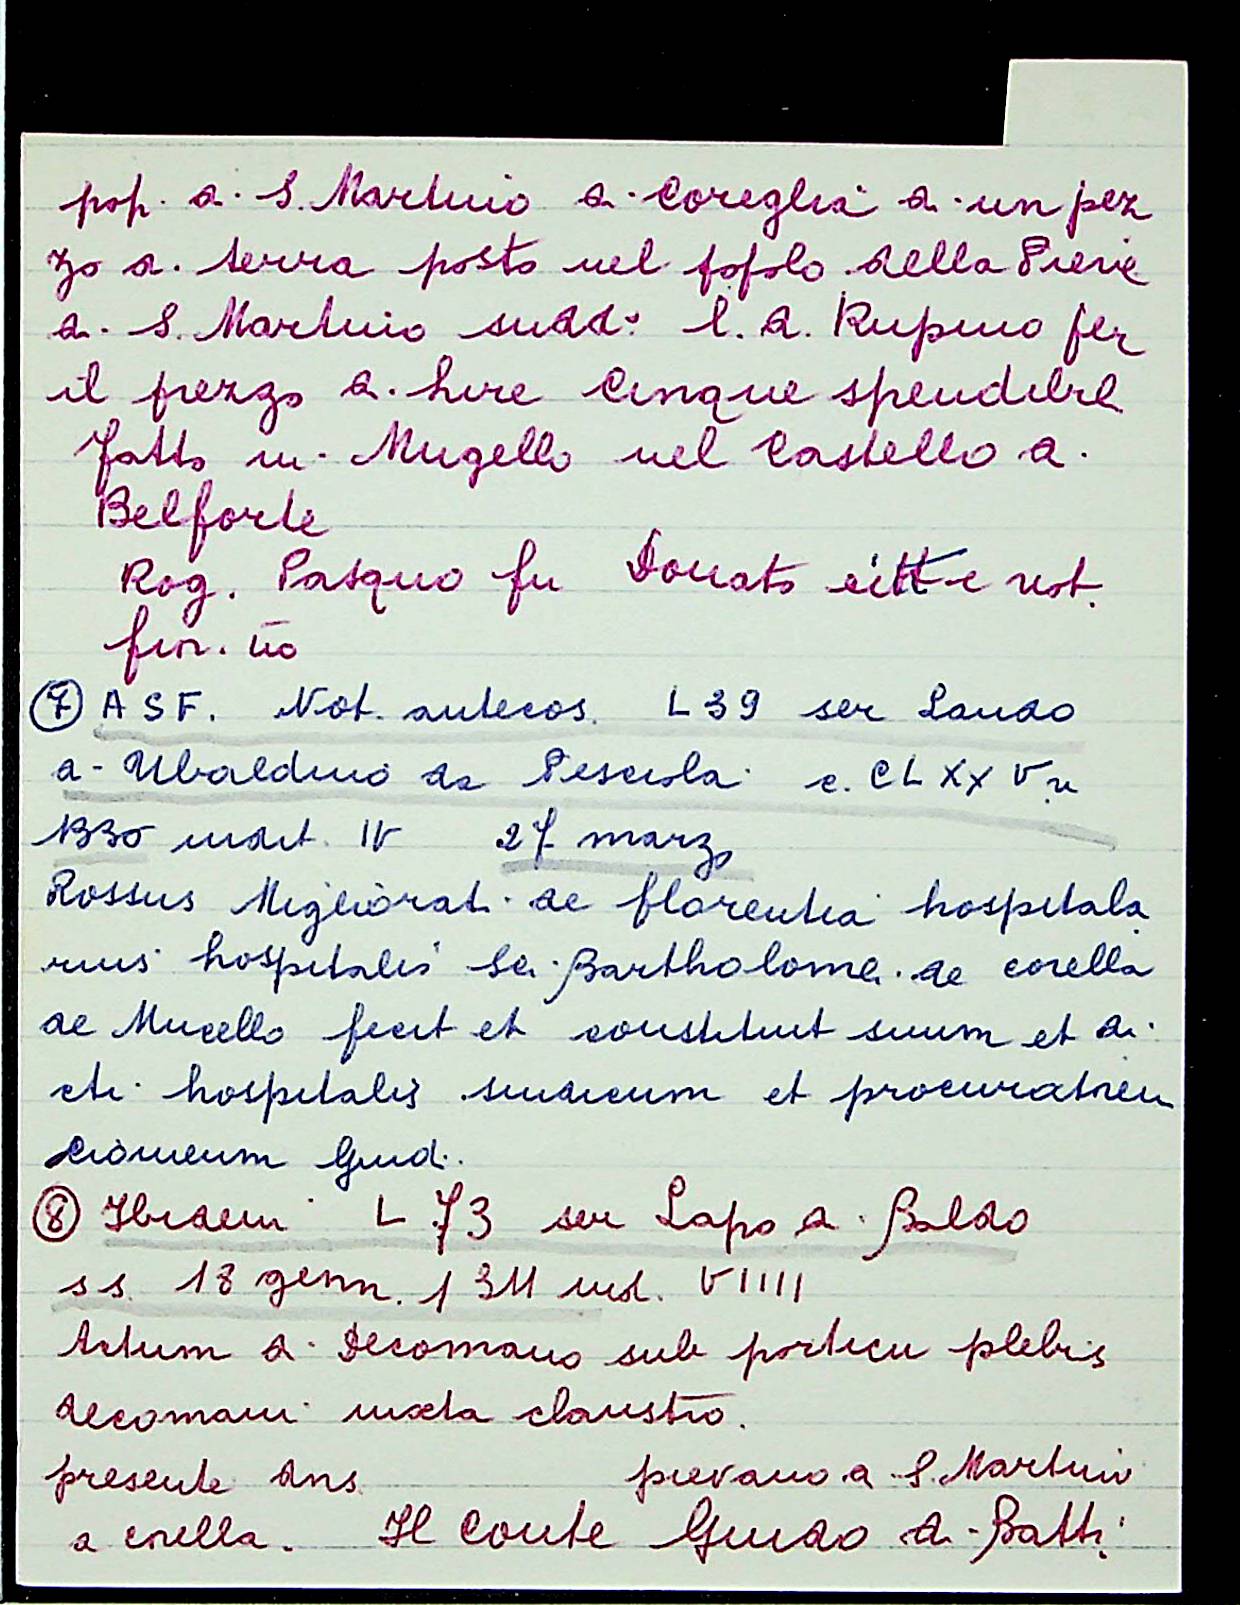 pop. di S. Martino di Coreglia di un pez
zo di terra posto nel popolo della Pieve
di S. Martino sudd: l. d. Rupino per
il prezzo di lire cinque spendibili
fatto in Mugello nel Castello di
Belforte
Rog. Pasquo fu Donato citt e not.
fior. no
⑦ ASF. Not. antecos. L 39 ser Lando
di Ubaldino da Pesciola c. CLXXV
1330 indit. IV 27 marzo
Rossus Migliorati de florentia hospitala
rius hospitalis Sci Bartholomei de corella
de Mucello fecit et constituit suum et di
cti hospitalis sindicum et procuratorem
Guid.
⑧ Ibidem L 73 ser Lapo di Baldo
ss. 18 genn. 1311 ind. VIIII
Actum di Decomano sub porticu plebis
decomani iuxta claustro.
presente dns pievano di S. Martino
a corella. Il Conte Guido di Batti